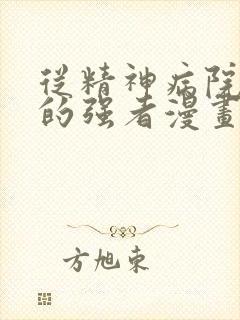 從精神病院
的强者漫畫
方旭東